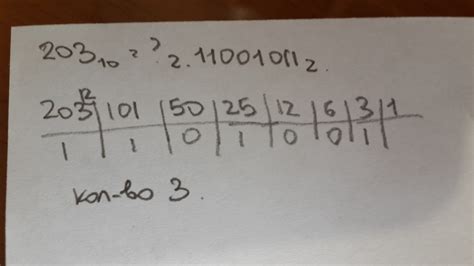 203₁₀ = ?₂. 11001011₂
203 |2 | 101 | 50 | 25 | 12 | 6 | 3 | 1
1 | 1 | 0 | 1 | 0 | 0 | 1
кол-во 3.